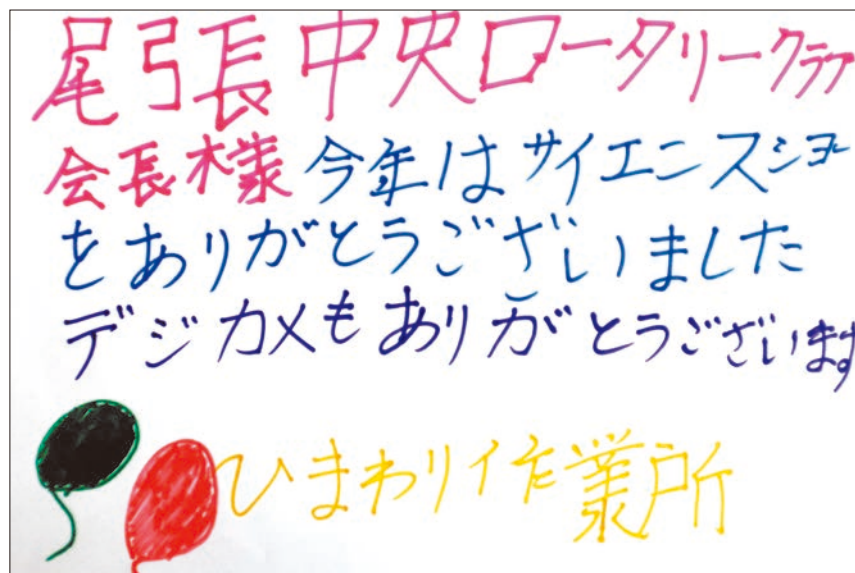 尾張中央ロータリークラブ
会長様 今年はサイエンスショー
をありがとうございました
デジカメもありがとうございます
ひまわり作業所